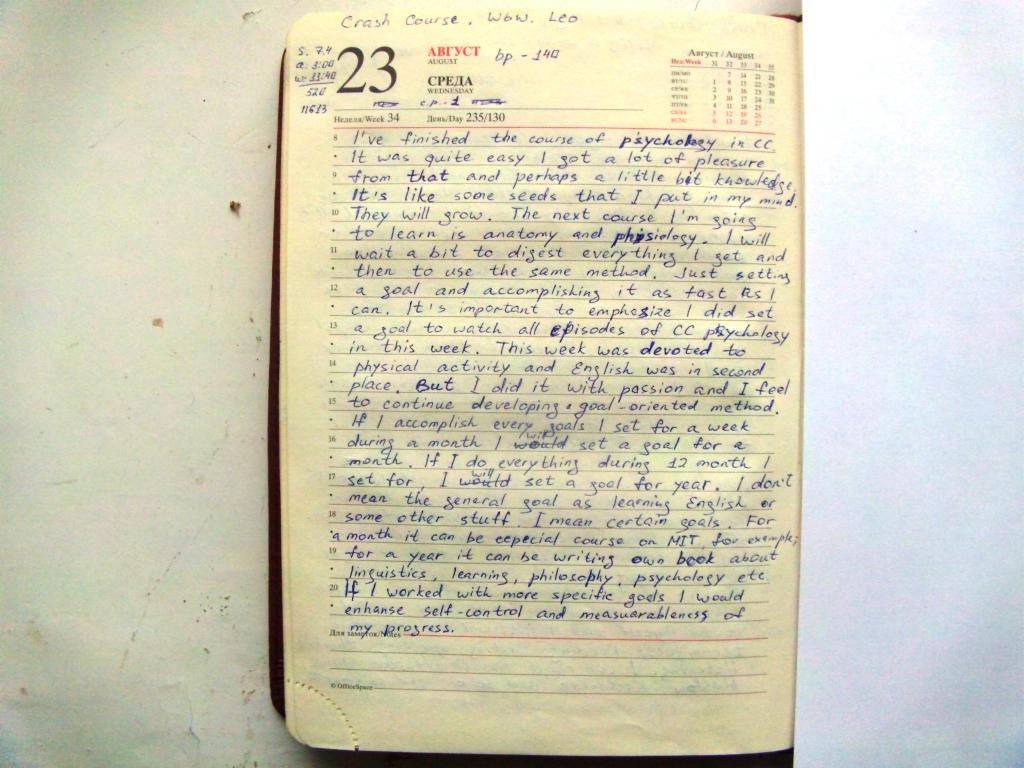 Crash Course. WbW. Leo
s. 7.4
a. 3:00
w. 33:40
520
11613
23
АВГУСТ
AUGUST
bp. - 140
СРЕДА
WEDNESDAY
с.р. - 1
Неделя/Week 34 День/Day 235/130
Август / August
Нед/Week 31 32 33 34 35
ПН/MO 7 14 21 28
ВТ/TU 1 8 15 22 29
СР/WE 2 9 16 23 30
ЧТ/TH 3 10 17 24 31
ПТ/FR 4 11 18 25
СБ/SA 5 12 19 26
ВС/SU 6 13 20 27
8 I've finished the course of psychology in CC.
It was quite easy I got a lot of pleasure
9 from that and perhaps a little bit knowledge.
It's like some seeds that I put in my mind.
10 They will grow. The next course I'm going
to learn is anatomy and phisiology. I will
11 wait a bit to digest everything I get and
then to use the same method. Just setting
12 a goal and accomplishing it as fast as I
can. It's important to emphasize I did set
13 a goal to watch all episodes of CC psychology
in this week. This week was devoted to
14 physical activity and English was in second
place. But I did it with passion and I feel
15 to continue developing goal-oriented method.
If I accomplish every goals I set for a week
16 during a month I will set a goal for a
month. If I do everything during 12 month I
17 set for, I will set a goal for year. I don't
mean the general goal as learning English or
18 some other stuff. I mean certain goals. For
a month it can be especial course on MIT, for example;
19 for a year it can be writing own book about
linguistics, learning, philosophy, psychology etc.
20 If I worked with more specific goals I would
enhanse self-control and measuarableness of
my progress.
Для заметок/Notes
© OfficeSpace